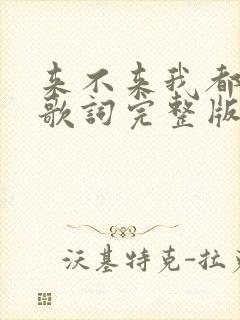 来不来我都
歌詞完整版
沃基特克-拉克